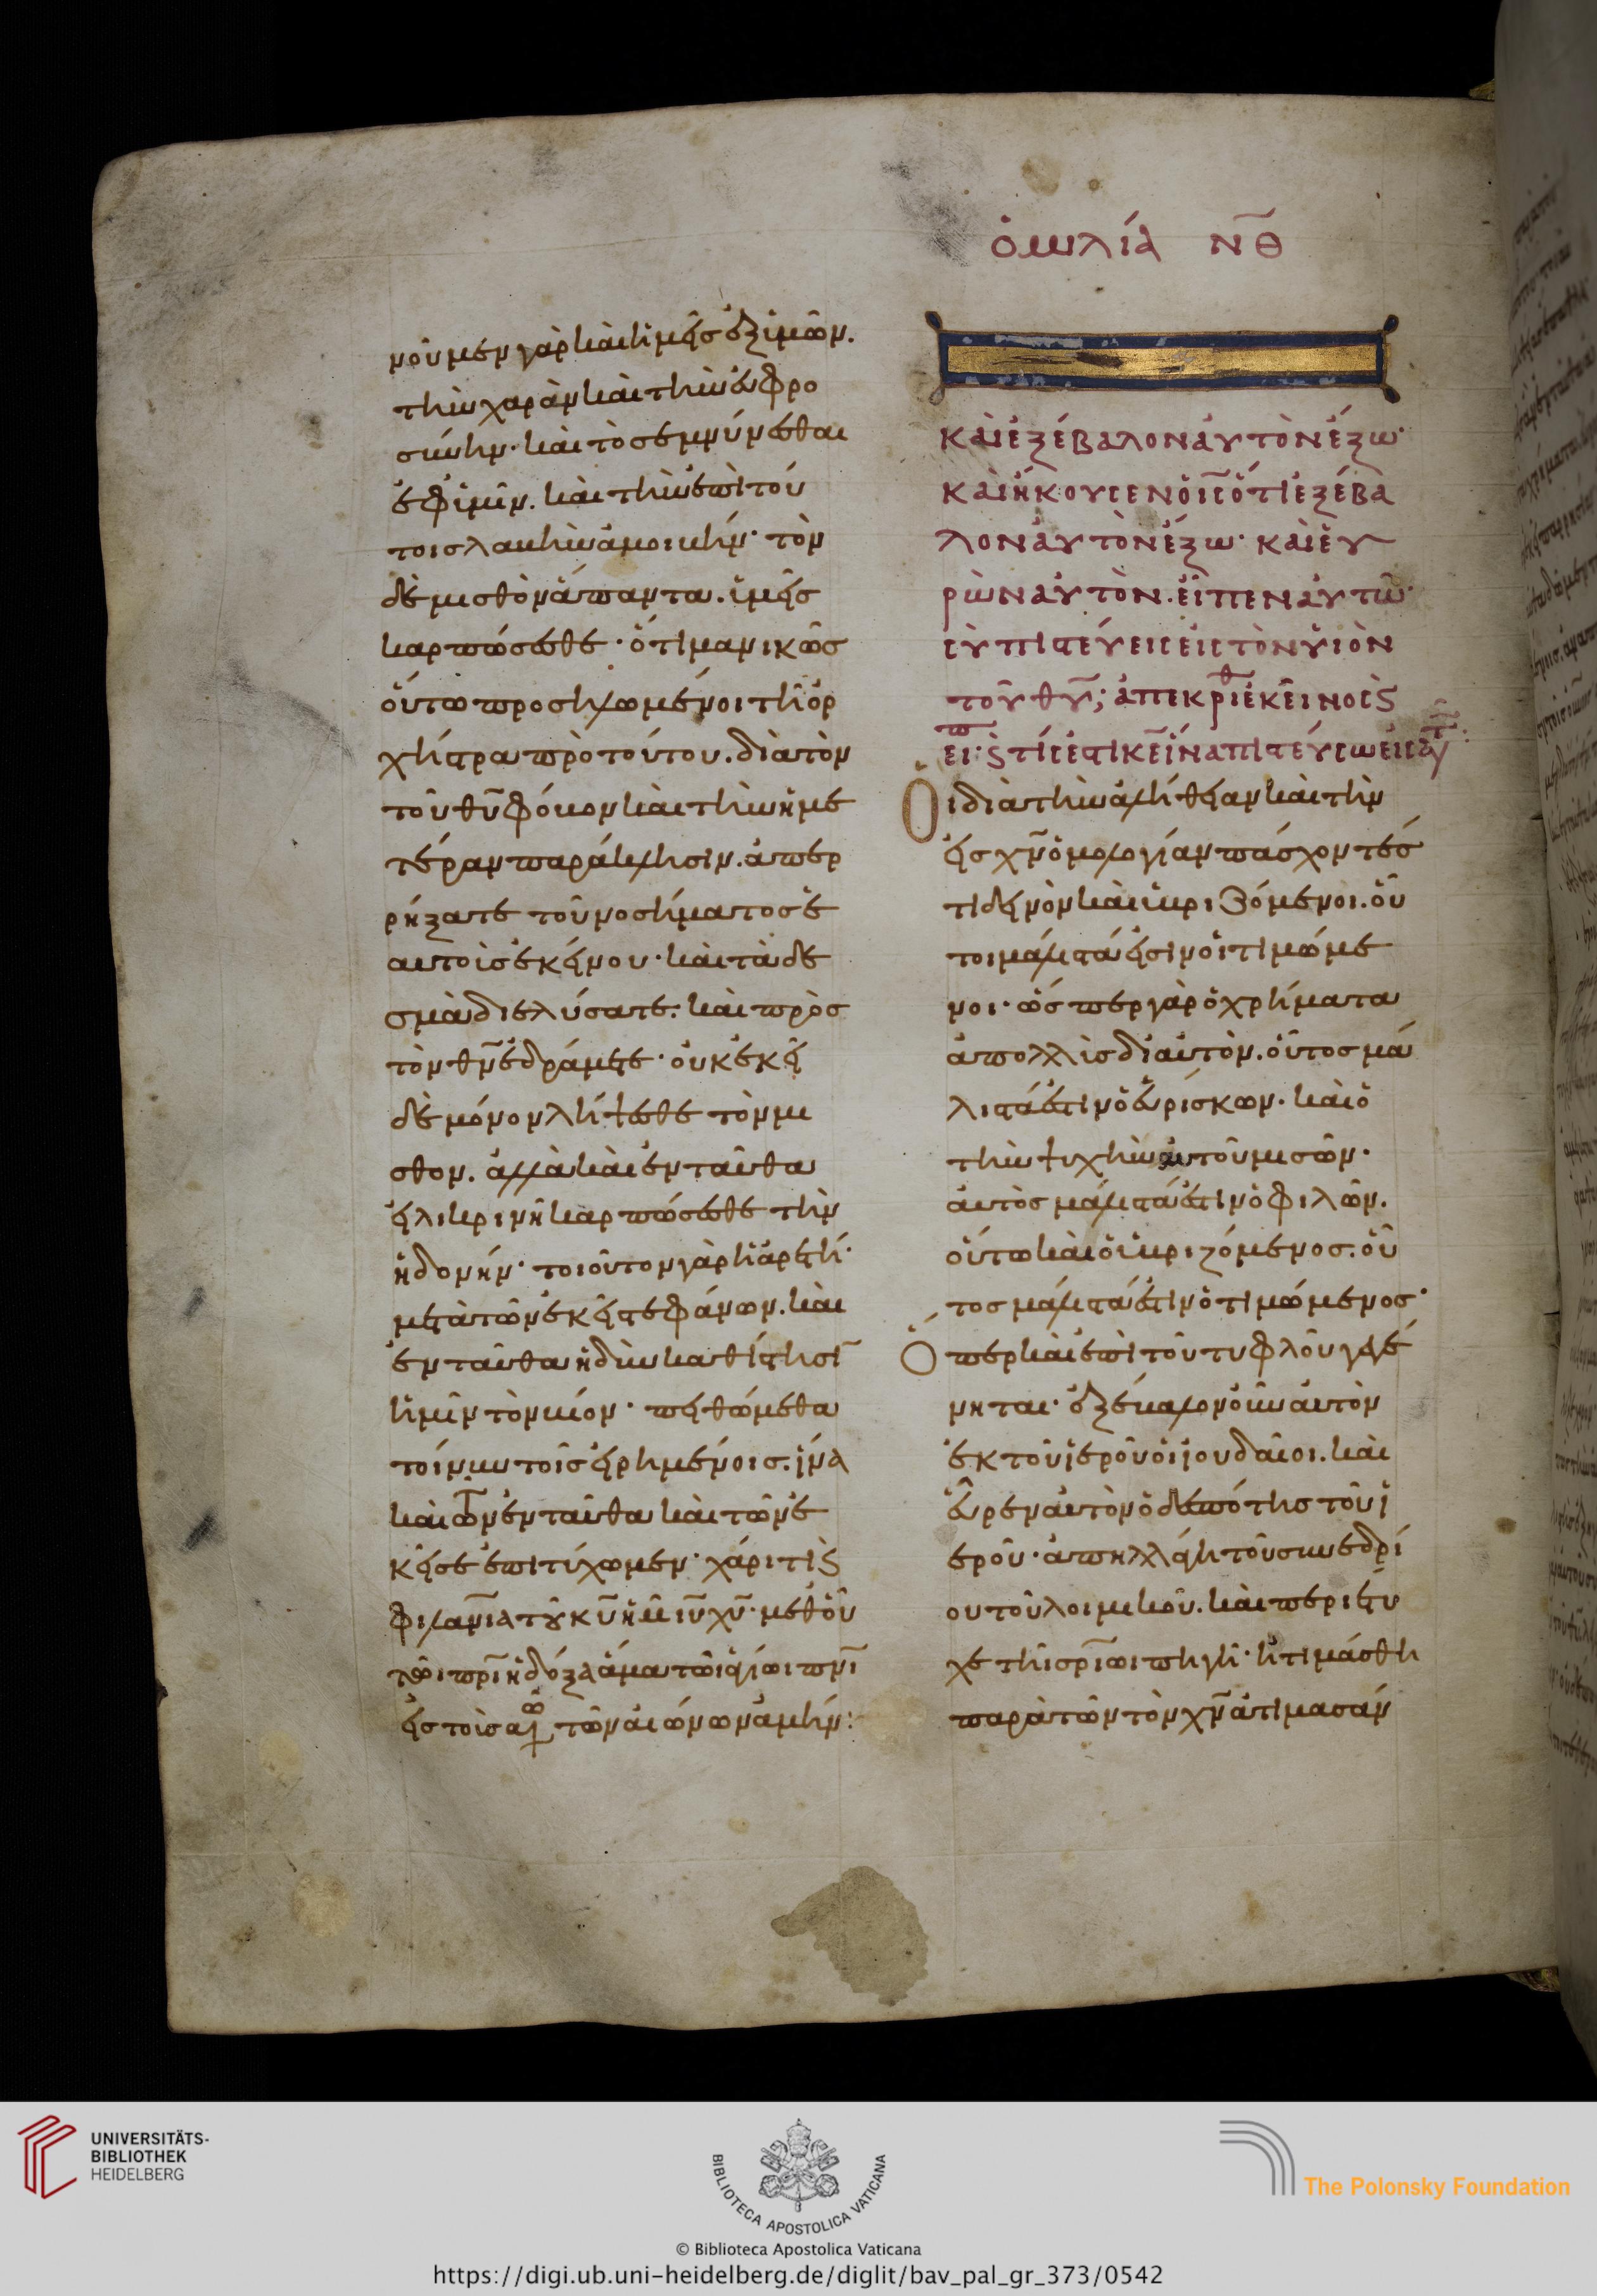 νοῦμεν γὰρ καὶ ἡμεῖς ἐξ ὑμῶν.
τὴν χαρὰν καὶ τὴν εὐφρο
σύνην· καὶ τὸ σεμνύνεσθαι
ἐφ ὑμῖν. καὶ τὴν ἐπὶ τού
τοις λαμπηδόνα
δὲ μισθὸν ἅπαντα. ὑμεῖς
καρπώσεσθε· ὅτι μανικῶς
οὕτω προσηλωμένοι τῆ ὀρ
χήστρα πρὸ τούτου. διὰ τὸν
τοῦ θ̅υ̅ φόβον καὶ τὴν ἡμε
τέραν παράκλησιν. ἀπερ
ρήξατε τοῦ νοσήματος ἑ
αυτοὶς ἐκείνου· καὶ τὰ δε
σμὰ διελύσατε. καὶ πρὸς
τὸν θ̅ν̅ ἐδράμετε· οὐκ ἐκεῖ
δὲ μόνον λήψεσθε τὸν μι
σθον. ἀλλὰ καὶ ἐνταῦθα
εἰλικρινῆ καρπώσεσθε τὴν
ἡδονήν· τοιοῦτον γὰρ ἡ ἀρετή·
μετὰ τῶν ἐκεῖ στεφάνων. καὶ
ἐνταῦθα ἡδὺν καθίστησι
ἡμῖν τὸν βίον· πειθώμεθα
τοίνυν τοῖς εἰρημένοις. ἵνα
καὶ τῶν ἐνταῦθα καὶ τῶν ἐ
κεῖσε ἐπιτύχωμεν· χάριτι ϛ
φιλαν̅ια τοῦ κ̅υ̅ ἡμ̅ ι̅υ̅ χ̅υ̅· μεθ οὗ
τῶι πρ̅ι̅ ἡ δόξα ἅμα τῶι ἁγίωι πν̅ι̅
εἰς τοὺς αἰῶ τῶν αἰώνων ἀμήν:
ὁμιλία ν̅θ̅
καὶ ἐξέβαλον αὐτὸν ἔξω·
καὶ ἤκουσεν ὁ ι̅ς̅ ὅτι ἐξέβα
λον αὐτὸν ἔξω· καὶ εὑ
ρὼν αὐτὸν. εἶπεν αὐτῶ·
σὺ πιστεύεις εἰς τὸν υἱὸν
τοῦ θ̅υ̅; ἀπεκρίθ ἐκεῖνος ϛ
εἶπ· ϛ τίς ἐστι κ̅ε̅ ἵνα πιστεύσω εἰς αὐτ:
Οἱ διὰ τὴν ἀλήθειαν καὶ τὴν
εἰς χ̅ν̅ ὁμολογίαν πάσχοντές
τι δεινὸν καὶ ὑβριζόμενοι. οὗ
τοι μάλιστά εἰσιν οἱ τιμώμε
νοι· ὥσπερ γὰρ ὁ χρήματα
ἀπολλὺς δι αὐτὸν. οὗτος μά
λιστά ἐστιν ὁ εὑρίσκων· καὶ ὁ
τὴν ψυχὴν αὐτοῦ μισῶν·
αὐτὸς μάλιστά ἐστιν ὁ φιλῶν.
οὕτω καὶ ὁ ὑβριζόμενος. οὗ
τος μάλιστά ἐστιν ὁ τιμώμενος·
Ὅπερ καὶ ἐπὶ τοῦ τυφλοῦ γεγέ
νηται· ἐξέβαλον οὖν αὐτὸν
ἐκ τοῦ ἱεροῦ οἱ ἰουδαῖοι. καὶ
εὗρεν αὐτὸν ὁ δεσπότης τοῦ ἱ
εροῦ· ἀπηλλάγη τοῦ συνεδρί
ου τοῦ λοιμικοῦ. καὶ περιέτυ
χε τῆ σρ̅ίωι πηγῆ· ἠτιμάσθη
παρὰ τῶν τὸν χ̅ν̅ ἀτιμασάν
UNIVERSITÄTS-
BIBLIOTHEK
HEIDELBERG
BIBLIOTECA APOSTOLICA VATICANA
The Polonsky Foundation
© Biblioteca Apostolica Vaticana
https://digi.ub.uni-heidelberg.de/diglit/bav_pal_gr_373/0542